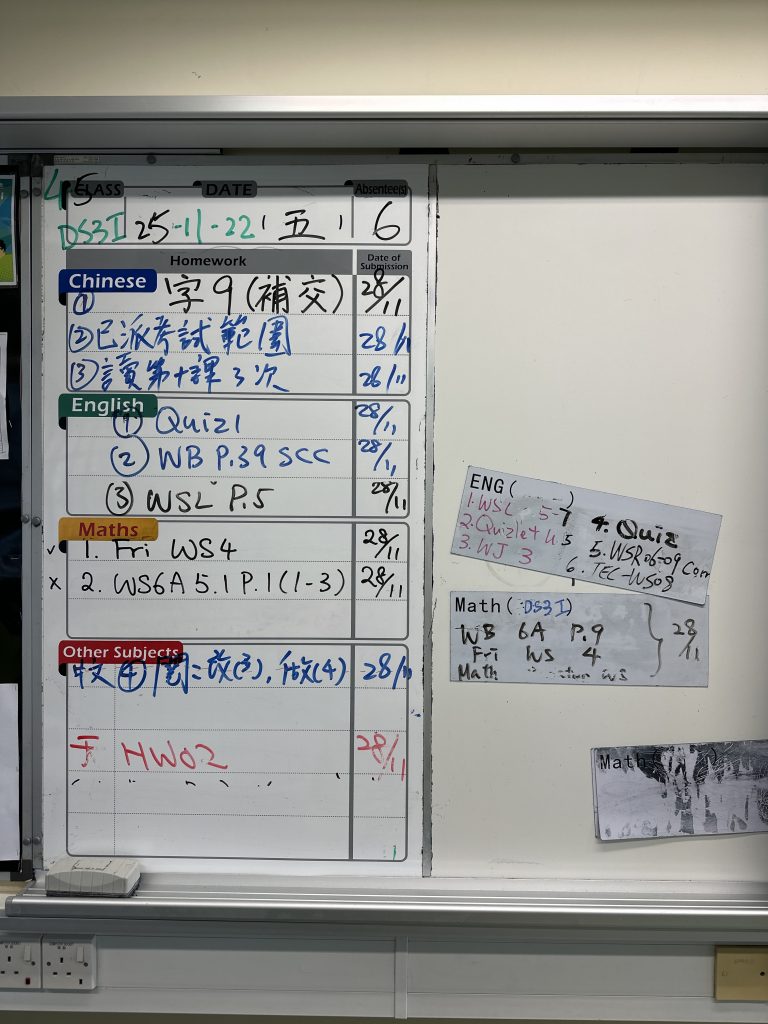 CLASS DATE Absentee(s)
DS3I 25-11-22 (五) 6
Homework Date of Submission
Chinese
① 字9(補交) 28/11
②已派考試範圍 28/11
③讀第十課3次 28/11
English
① Quiz1 28/11
② WB P.39 SCC 28/11
③ WSL P.5 28/11
Maths
✓ 1. Fri WS4 28/11
x 2. WS6A 5.1 P.1(1-3) 28/11
Other Subjects
中文④ 改(3), 做(4) 28/11
HW02 28/11
ENG( )
1. WSL 5-7
2. Quizlet U5
3. WJ 3
4. Quiz
5. WSR06-09 Corr
6. TEC-WS08
Math(DS3I)
WB 6A P.9
Fri WS 4
Math WS
28/11
Math(